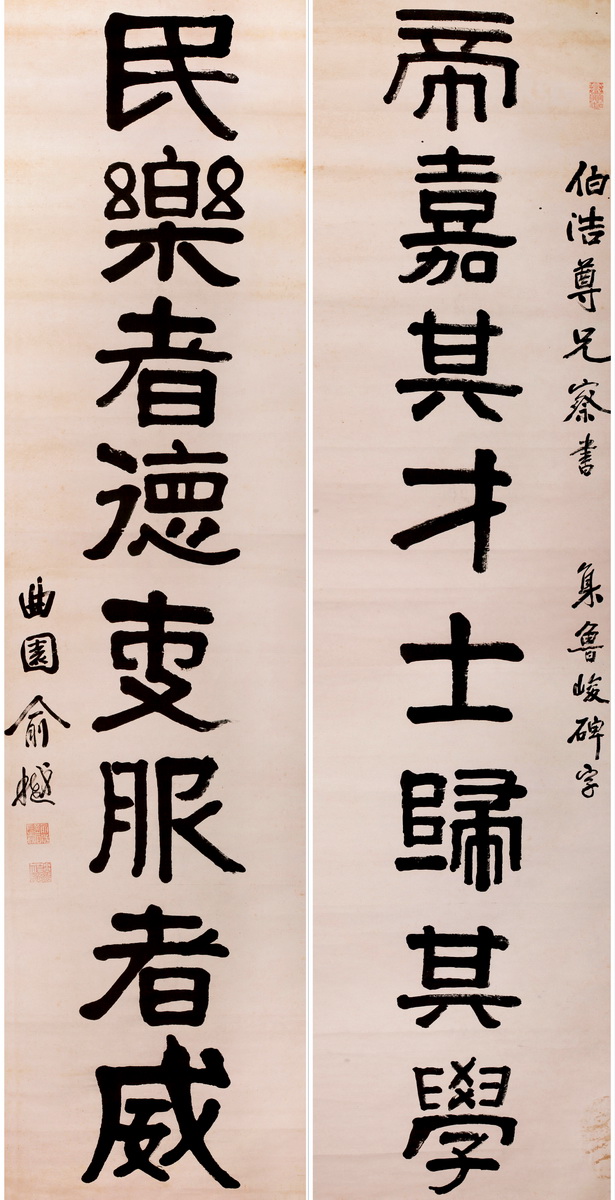 伯浩尊兄察书
集魯峻碑字
帝嘉其才士歸其學
民樂者德吏服者威
曲園俞樾